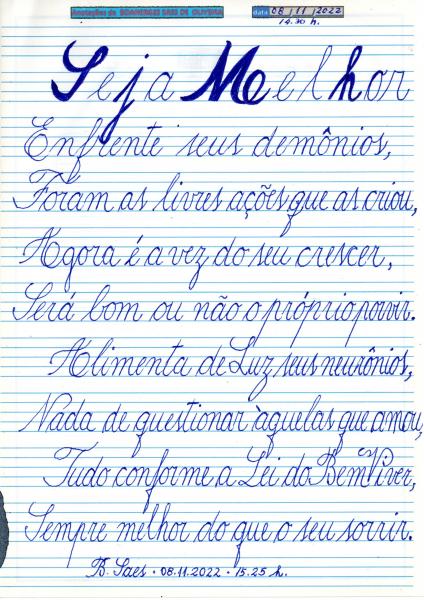 Anotações de BOANERGES SAES DE OLIVEIRA
data 08 / 11 / 2022
14.30 h.
Seja Melhor
Enfrente seus demônios,
Foram as livres ações que as criou,
Agora é a vez do seu crescer,
Será bom ou não o próprio porvir.
Alimenta de Luz seus neurônios,
Nada de questionar àquelas que amou,
Tudo conforme a Lei do Bem Viver,
Sempre melhor do que o seu sorrir.
B. Saes · 08.11.2022 · 15.25 h.